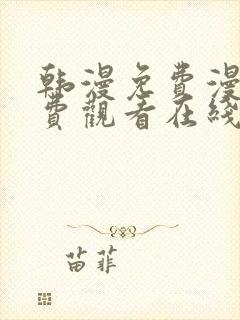 韩漫免費漫
費觀看在綫
苗菲